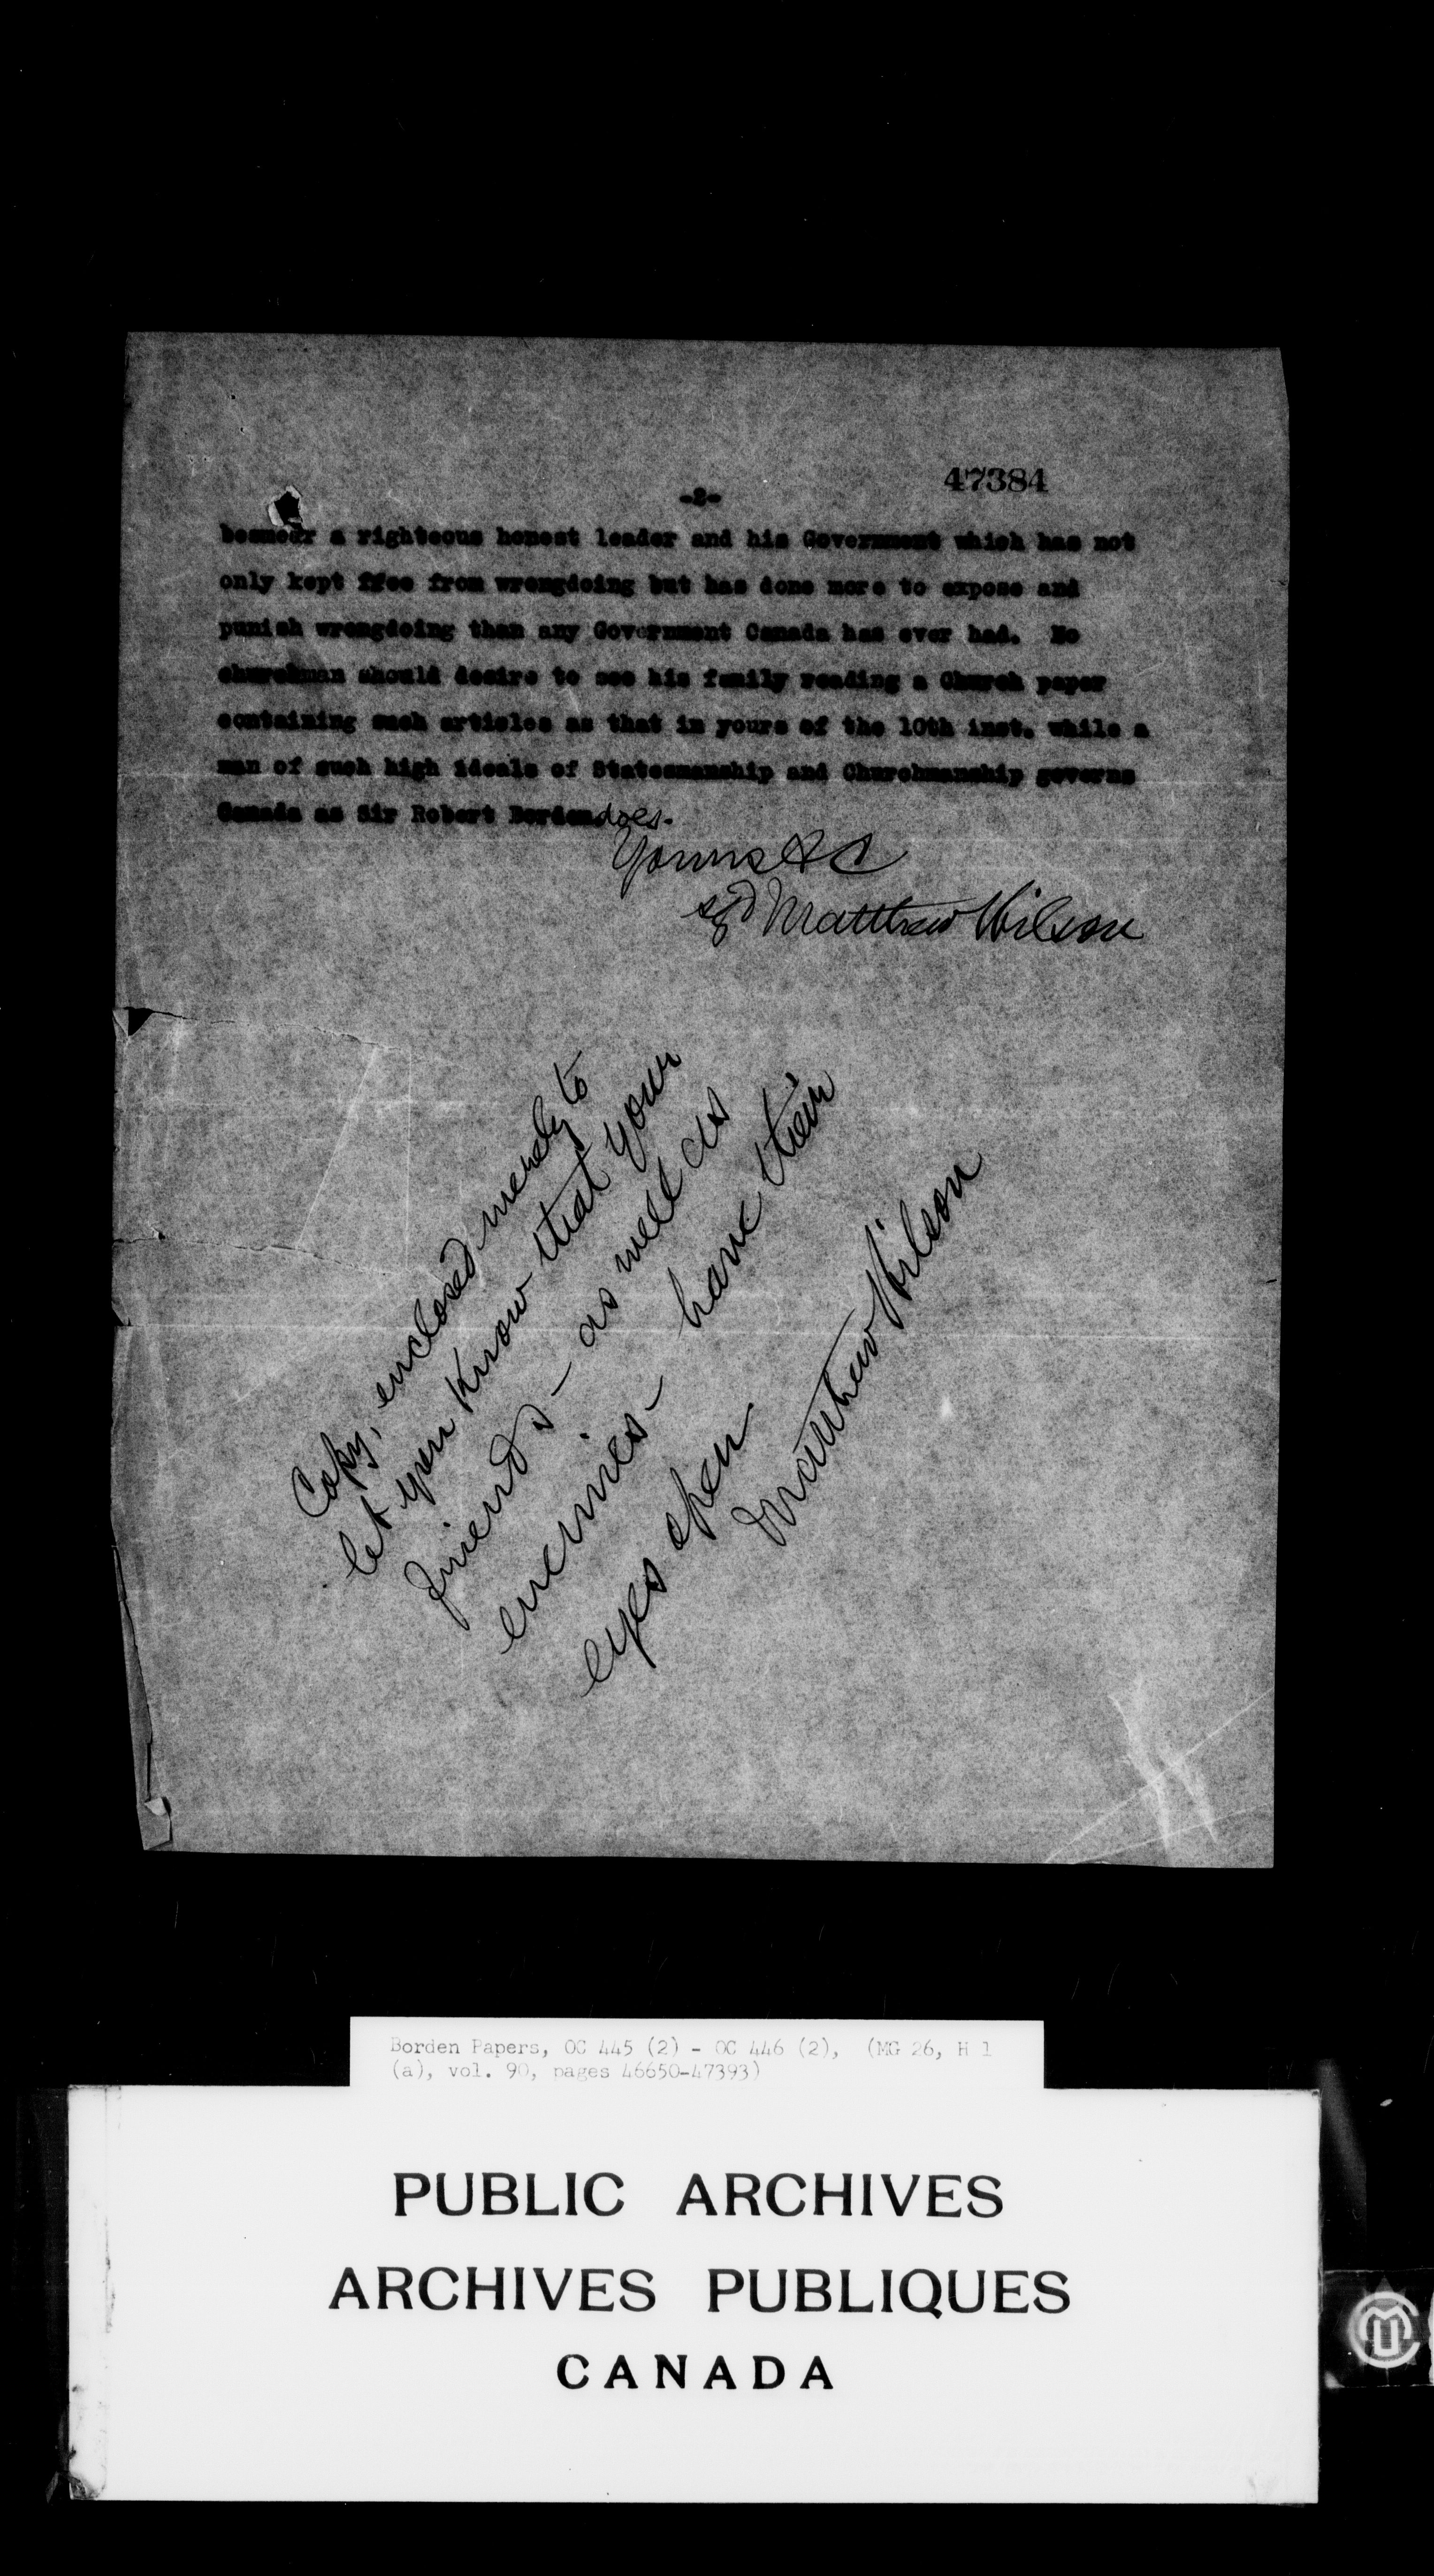 47384
-2-
besmear a righteous honest leader and his Government which has not
only kept ffee from wrongdoing but has done more to expose and
punish wrongdoing than any Government Canada has ever had. No
churchman should desire to see his family reading a Church paper
containing such articles as that in yours of the 10th inst. while a
man of such high ideals of Statesmanship and Churchmanship governs
Canada as Sir Robert Borden does.
Yours &c
sgd Matthew Wilson
Copy, enclosed merely to
let you know that your
friends - as well as
enemies - have their
eyes open
Matthew Wilson
Borden Papers, OC 445 (2) - OC 446 (2), (MG 26, H 1
(a), vol. 90, pages 46650-47393)
PUBLIC ARCHIVES
ARCHIVES PUBLIQUES
CANADA